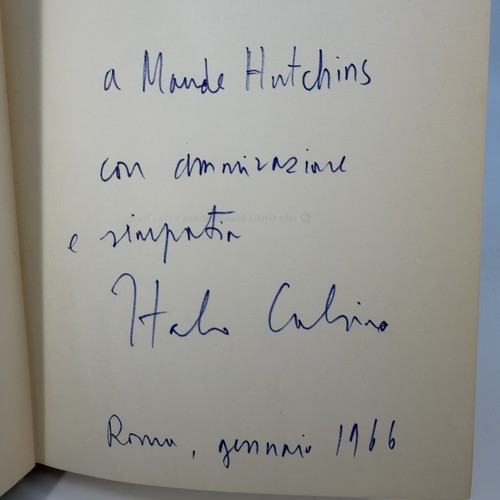 a Maude Hutchins
con ammirazione
e simpatia
Italo Calvino
Roma, gennaio 1966